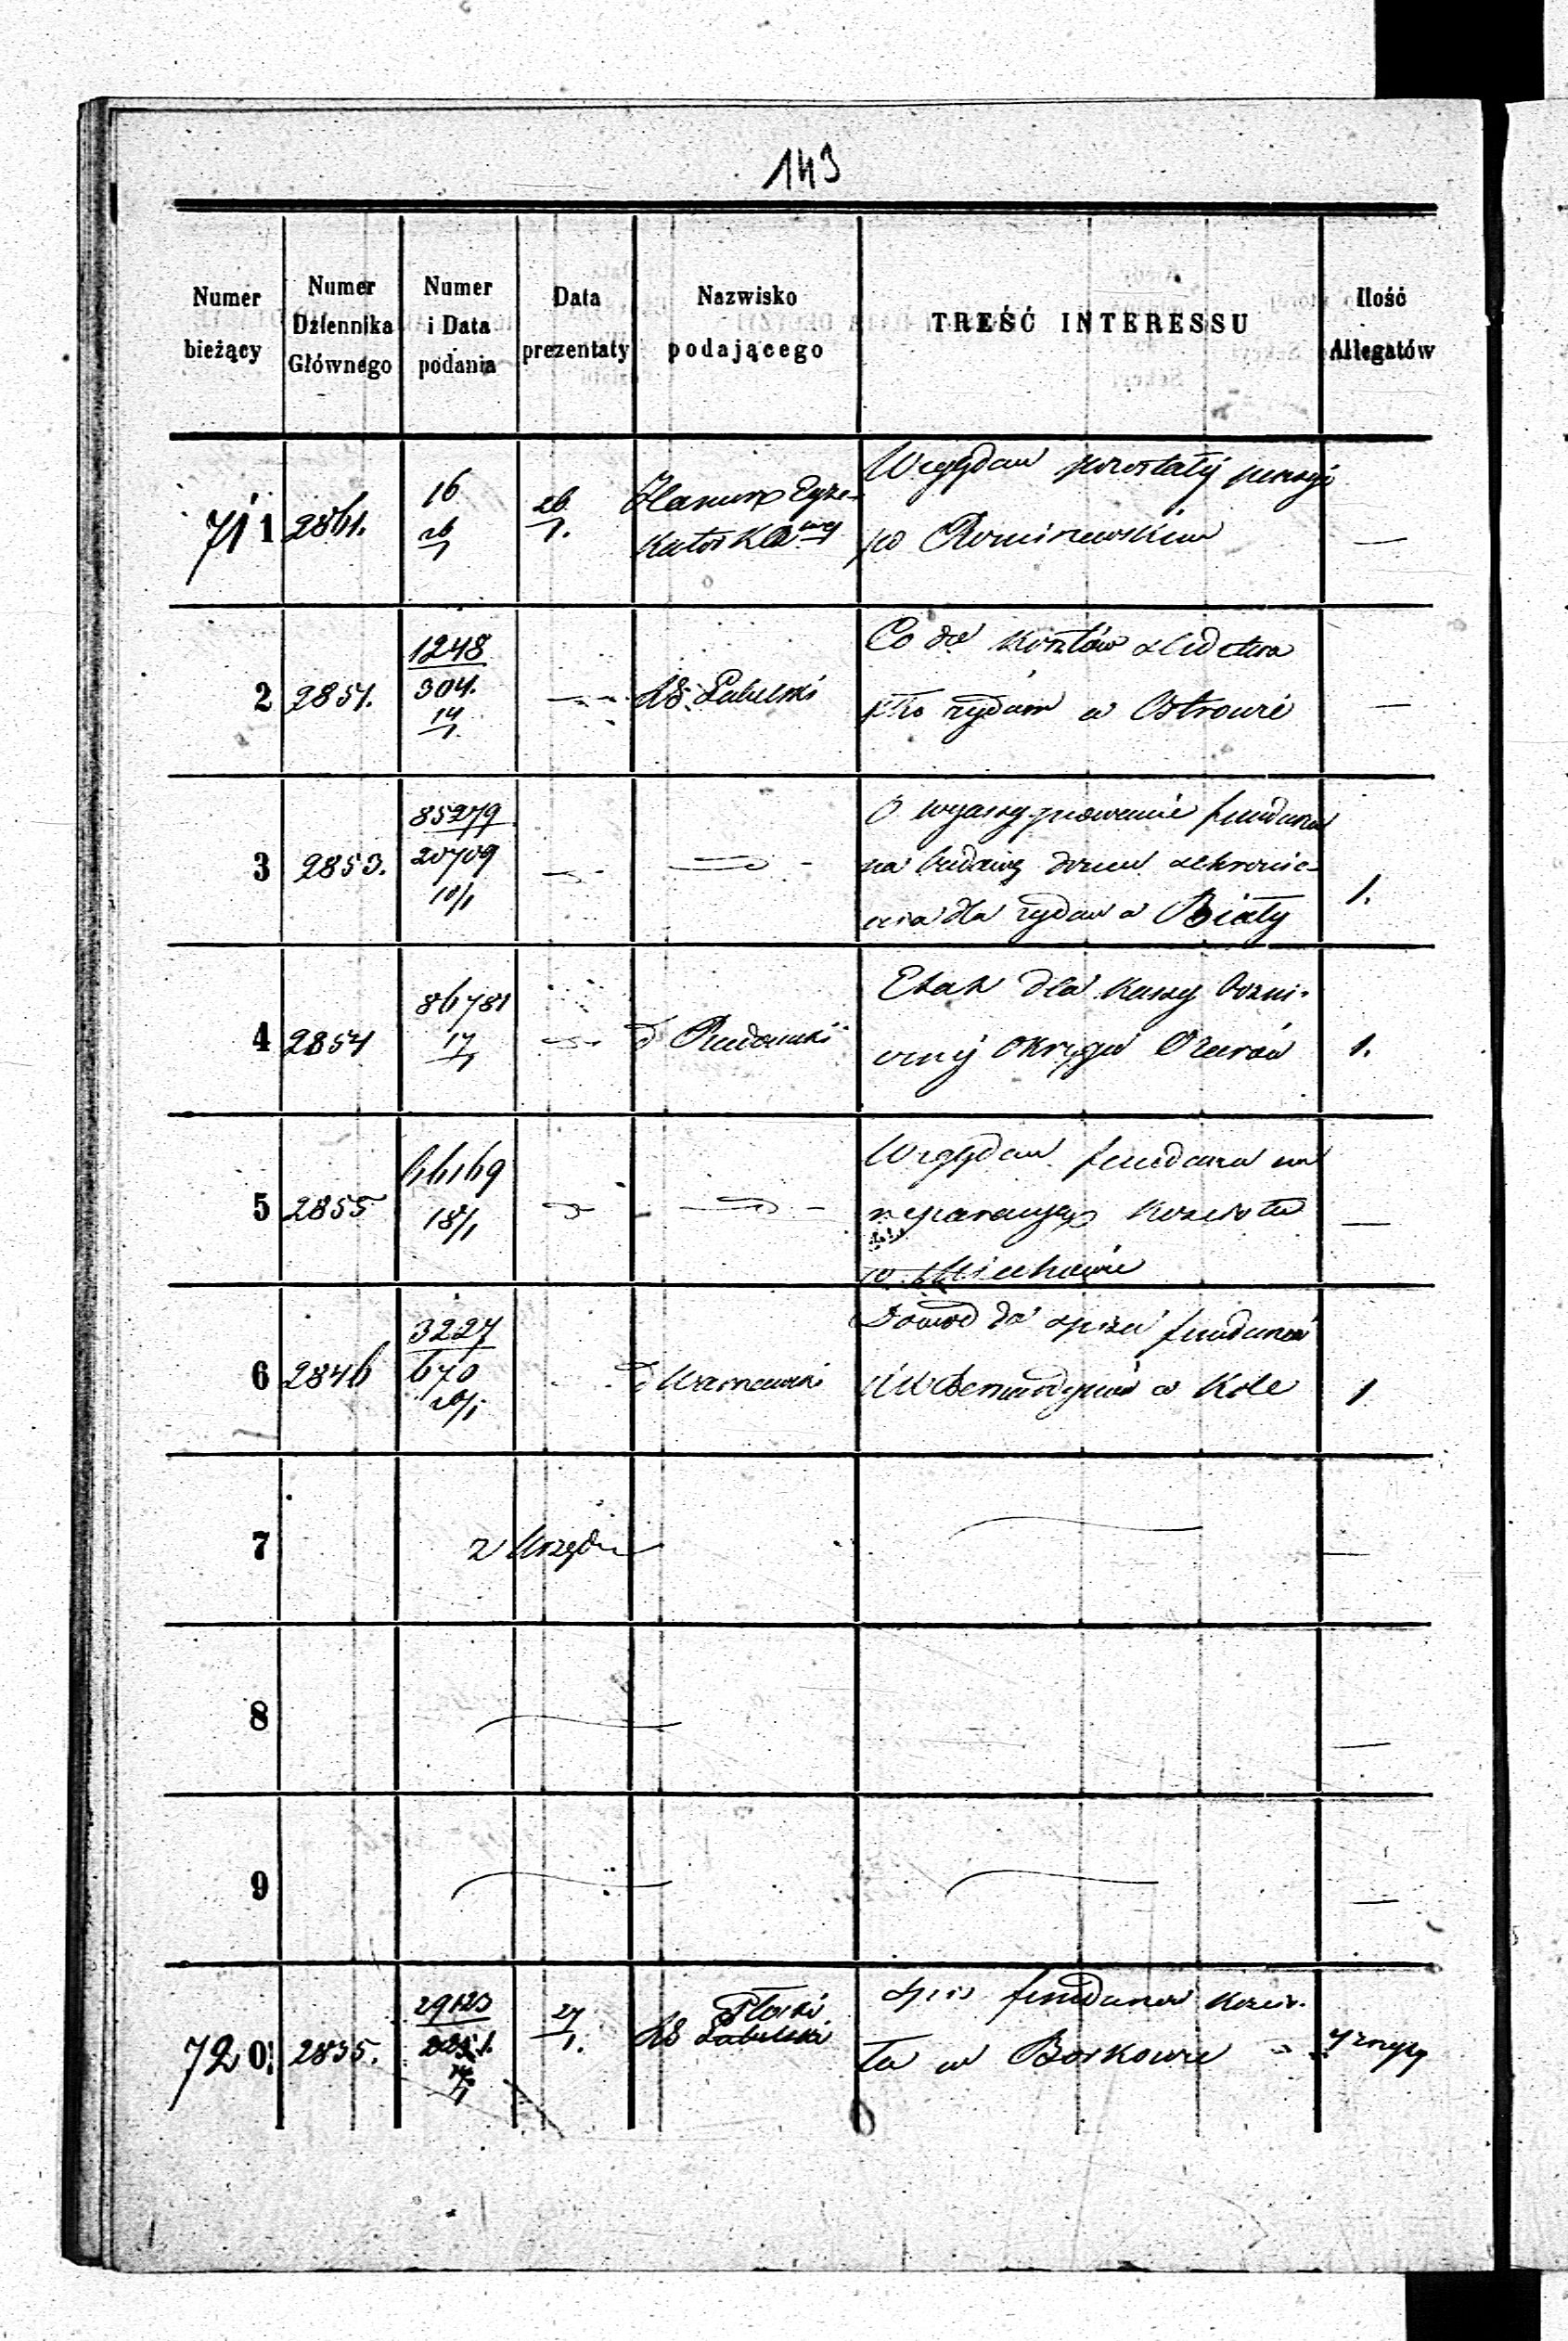 143
Numer bieżący
Numer Dziennika Głównego
Numer i Data podania
Data prezentaty
Nazwisko podającego
TREŚĆ INTERESSU
Ilość Allegatów
711 2861. 16 26/1 26/1. 
Względem pozostałej pensyi
po
—
2 2851. 1248 304. 14/1 Lubelski
Co do kosztów
żydom w Ostrowie
—
3 2853. 85279 20709 10/1
O wyassygnowanie funduszu
na budowę domu schronie-
nia dla żydów w Biały
1.
4 2854 86781 17/1 Radomski
Etat dla kassy Bożni-
cznej Okręgu Ożarów
1.
5 2855 66169 18/1
Względem funduszu na
reparacyą Kościoła
w Miechowie
—
6 2846 3227 670 20/1 Warszawski
Dowód do opisu funduszów
Bernardynów w Kole
1
7 z Urzędu
—
8
—
9
—
720. 2835. 29123 27/1. Płocki Lubelski
opis funduszów kościo-
ła w Borkowie